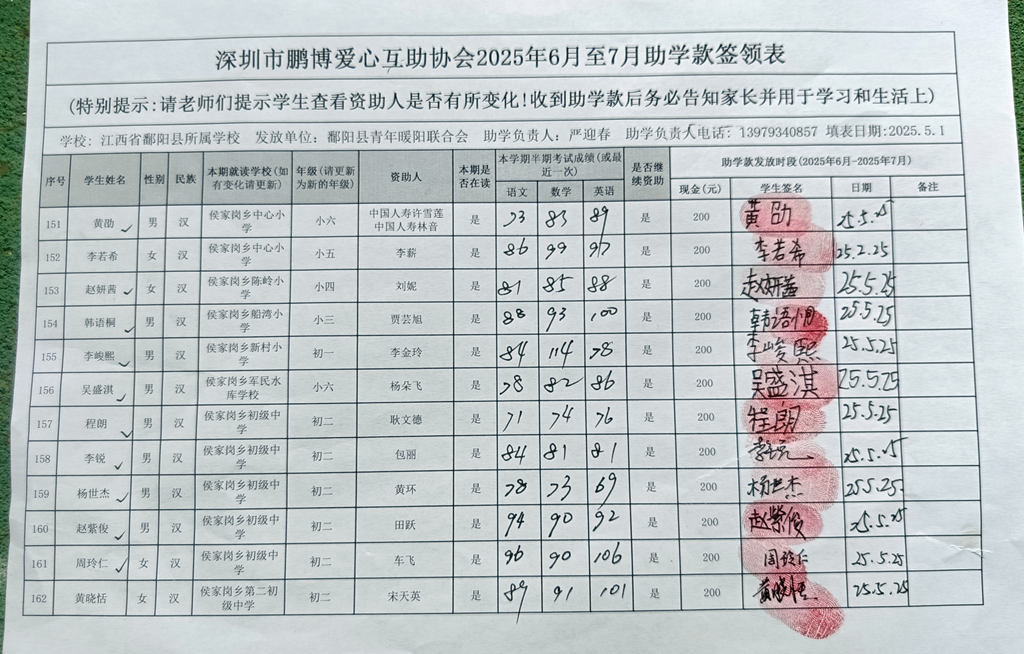 深圳市鹏博爱心互助协会2025年6月至7月助学款签领表
(特别提示:请老师们提示学生查看资助人是否有所变化!收到助学款后务必告知家长并用于学习和生活上)
学校: 江西省鄱阳县所属学校 发放单位: 鄱阳县青年暖阳联合会 助学负责人: 严迎春 助学负责人电话: 13979340857 填表日期:2025.5.1
序号 学生姓名 性别 民族 本期就读学校(如有变化请更新) 年级(请更新为新的年级) 资助人 本期是否在读 本学期半期考试成绩(或最近一次) 是否继续资助 助学款发放时段(2025年6月-2025年7月)
语文 数学 英语 现金(元) 学生签名 日期 备注
151 黄劭 ✓ 男 汉 侯家岗乡中心小学 小六 中国人寿许雪莲 中国人寿林音 是 73 83 89 是 200 黄劭 25.5.25
152 李若希 女 汉 侯家岗乡中心小学 小五 李薪 是 86 99 97 是 200 李若希 25.2.25
153 赵妍茜 ✓ 女 汉 侯家岗乡陈岭小学 小四 刘妮 是 81 85 88 是 200 赵妍茜 25.5.25
154 韩语桐 ✓ 男 汉 侯家岗乡船湾小学 小三 贾芸旭 是 88 93 100 是 200 韩语桐 25.5.25
155 李峻熙 ✓ 男 汉 侯家岗乡新村小学 初一 李金玲 是 84 114 78 是 200 李峻熙 25.5.25
156 吴盛淇 ✓ 男 汉 侯家岗乡军民水库学校 小六 杨朵飞 是 78 82 86 是 200 吴盛淇 25.5.25
157 程朗 ✓ 男 汉 侯家岗乡初级中学 初二 耿文德 是 71 74 76 是 200 程朗 25.5.25
158 李锐 ✓ 男 汉 侯家岗乡初级中学 初二 包丽 是 84 81 81 是 200 25.5.25
159 杨世杰 ✓ 男 汉 侯家岗乡初级中学 初二 黄环 是 78 73 69 是 200 杨世杰 25.5.25.
160 赵紫俊 ✓ 男 汉 侯家岗乡初级中学 初二 田跃 是 94 90 92 是 200 赵紫俊 25.5.25
161 周玲仁 ✓ 女 汉 侯家岗乡初级中学 初二 车飞 是 96 90 106 是 200 周玲仁 25.5.25
162 黄晓恬 女 汉 侯家岗乡第二初级中学 初二 宋天英 是 89 91 101 是 200 黄晓恬 25.5.25